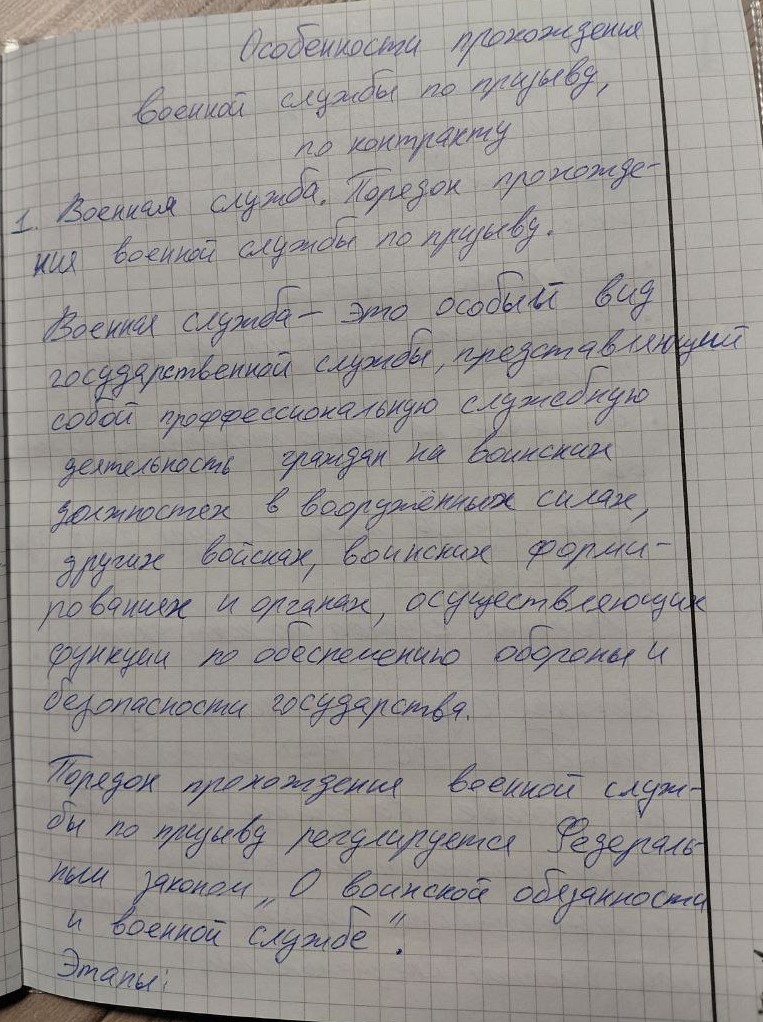 Особенности прохождения
военной службы по призыву,
по контракту
1. Военная служба. Порядок прохожде-
ния военной службы по призыву.
Военная служба – это особый вид
государственной службы, представляющий
собой проффессиональную служебную
деятельность граждан на воинских
должностях в вооружённых силах,
других войсках, воинских форми-
рованиях и органах, осуществляющих
функции по обеспечению обороны и
безопасности государства.
Порядок прохождения военной служ-
бы по призыву регулируется Федераль-
ным законом „О воинской обязанности
и военной службе“.
Этапы: